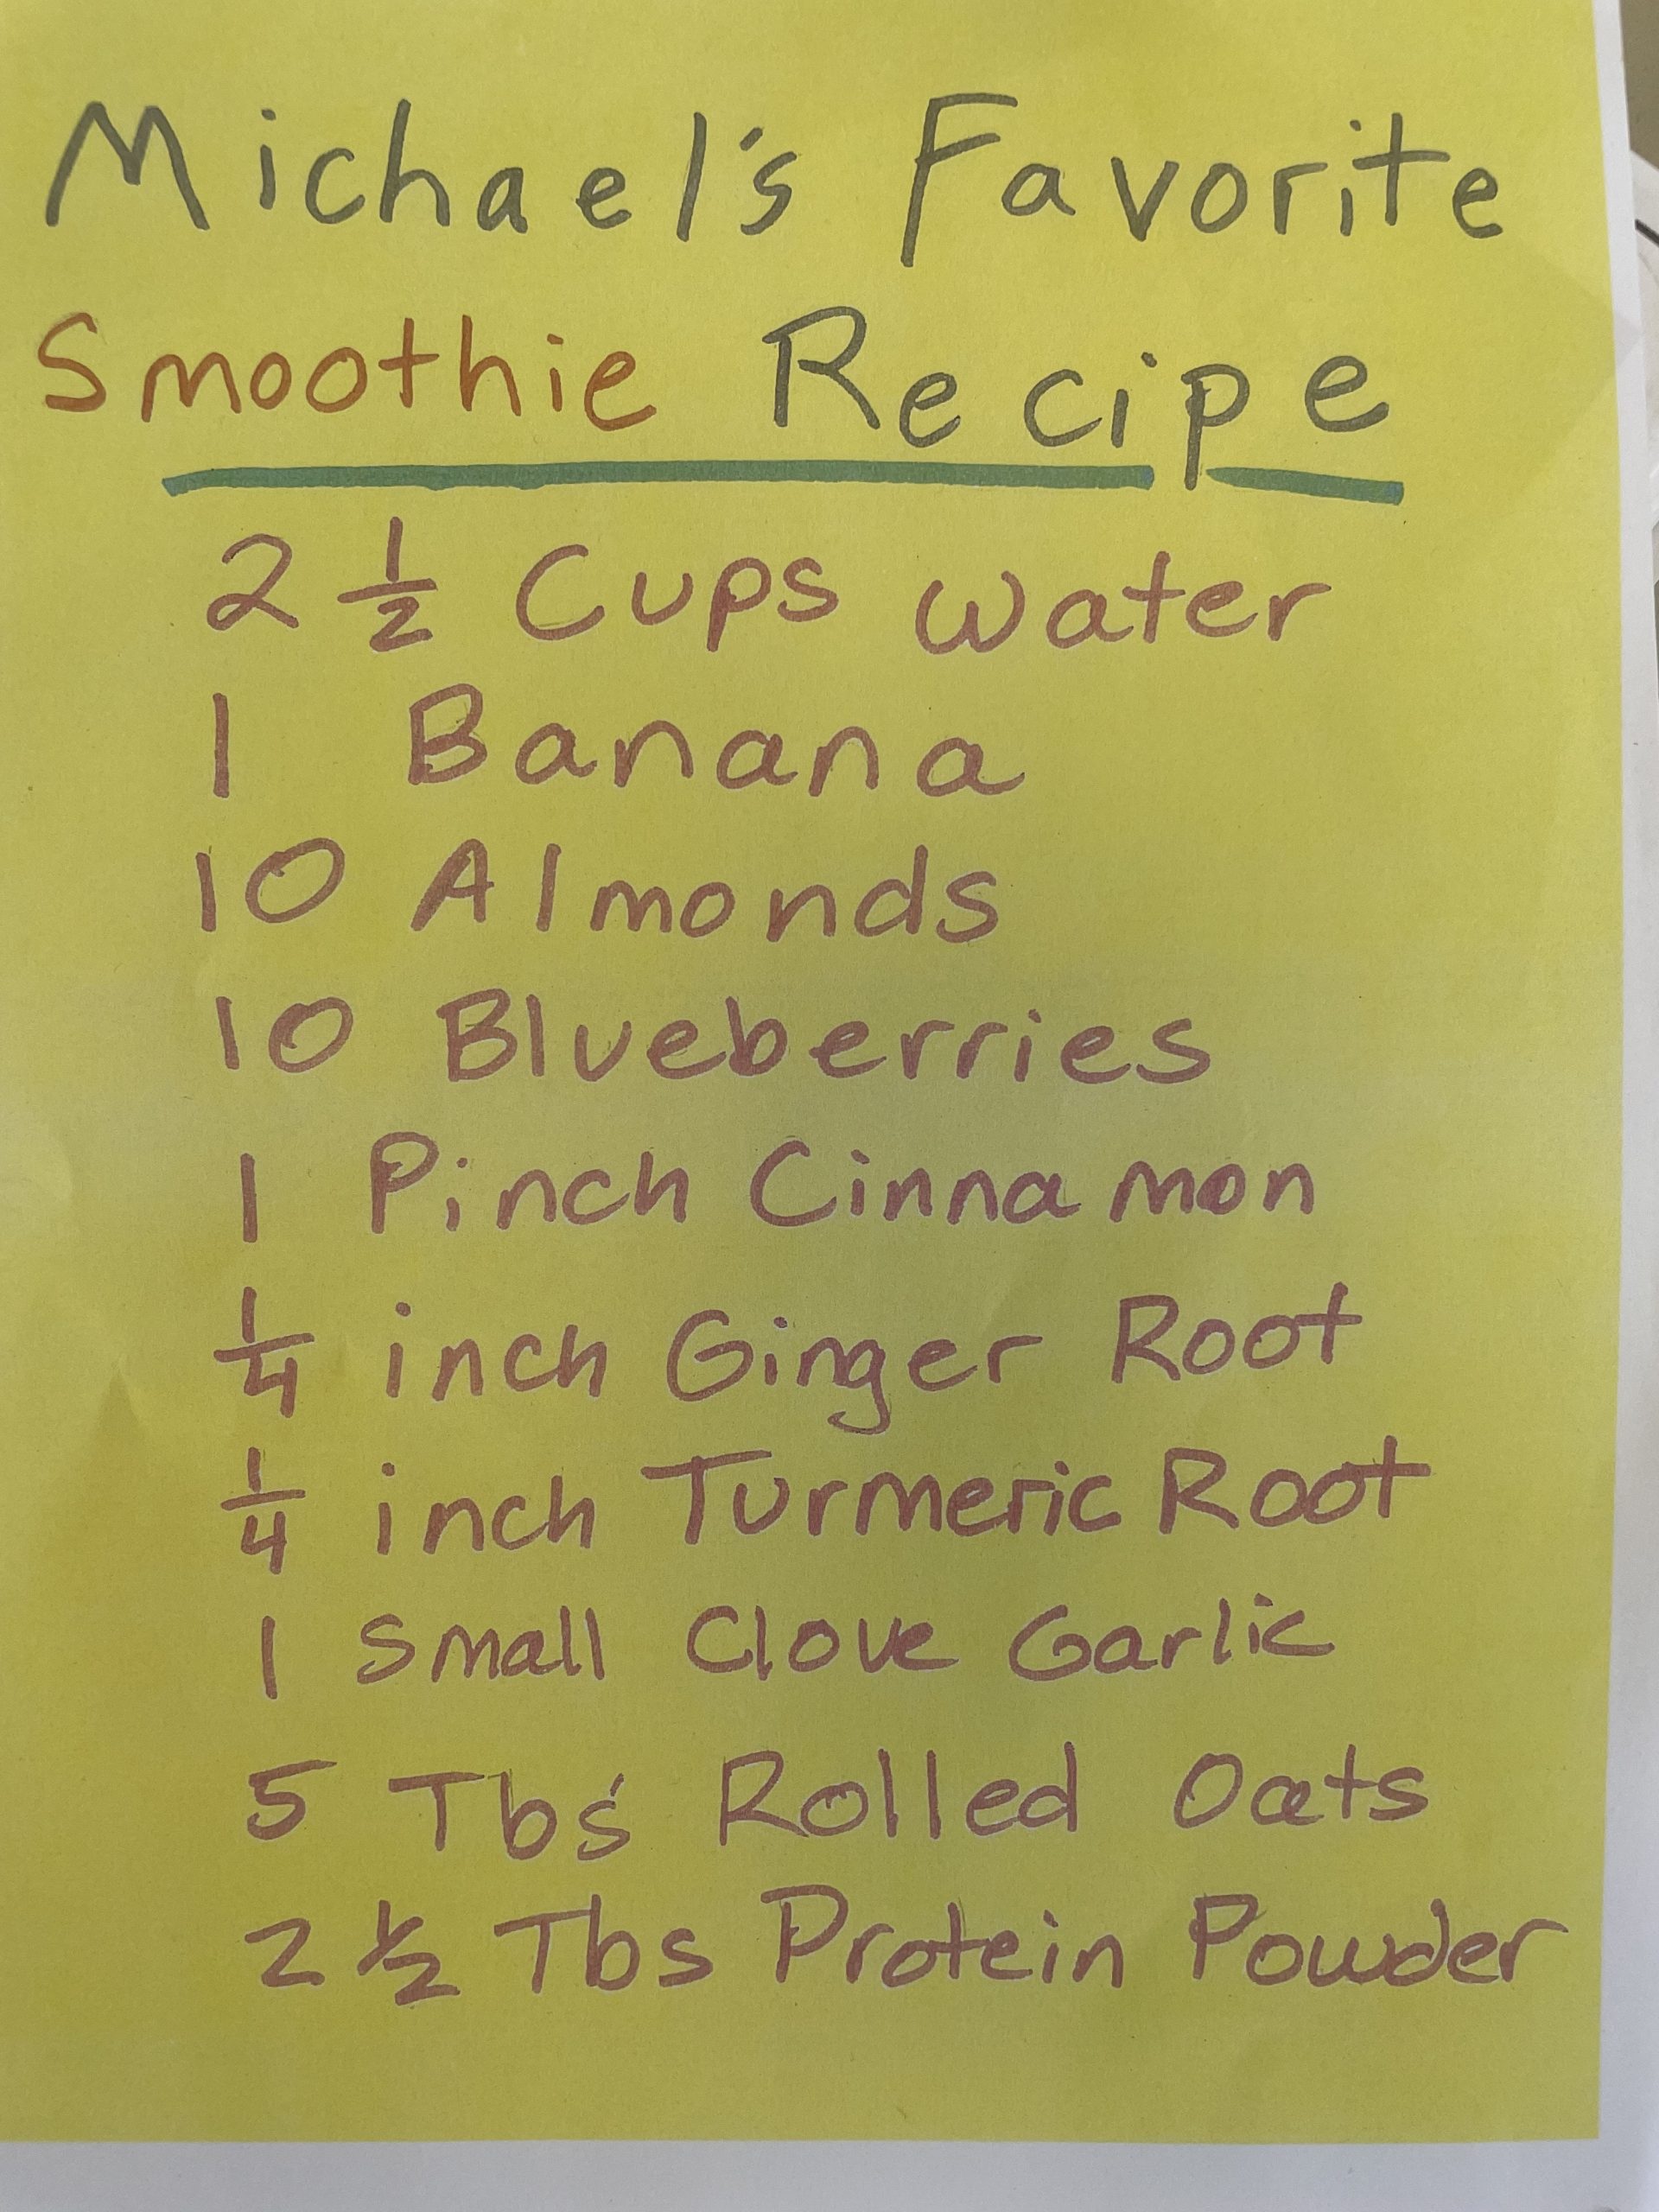 Michael's Favorite
Smoothie Recipe
2 1/2 Cups water
1 Banana
10 Almonds
10 Blueberries
1 Pinch Cinnamon
1/4 inch Ginger Root
1/4 inch Turmeric Root
1 Small Clove Garlic
5 Tbs' Rolled Oats
2 1/2 Tbs Protein Powder